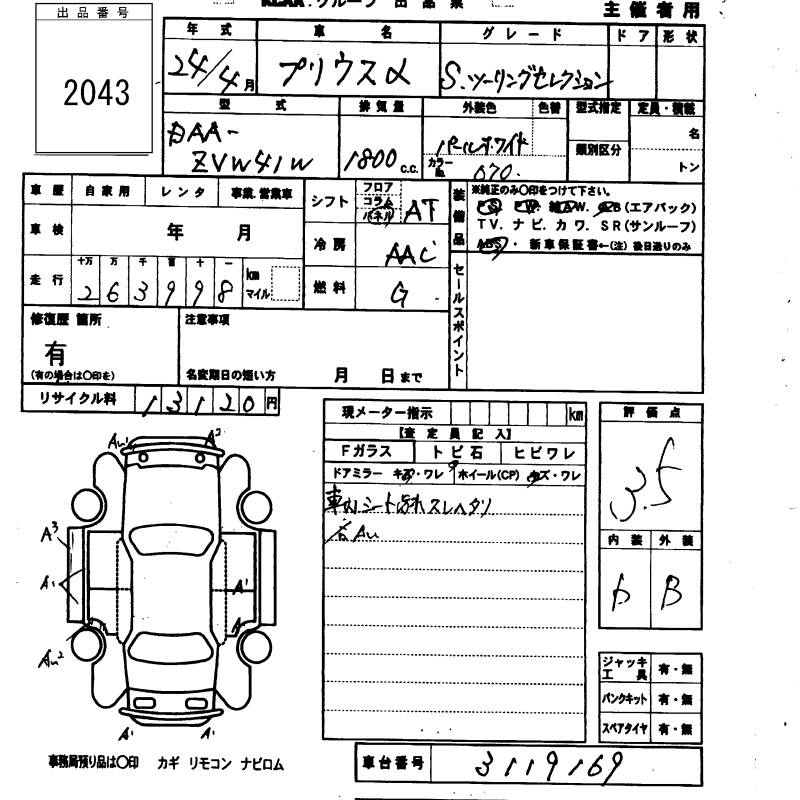 出品番号
2043
主催者用
年式 車名 グレード ドア 形状
24/4月 プリウスα S.ツーリングセレクション
型式 排気量 外装色 色替 型式指定 定員・積載
DAA-
ZVW41W 1800c.c. パールホワイト 類別区分 名
カラーNo. 070. トン
車歴 自家用 レンタ 事業.営業車
シフト フロア コラム パネル AT
装備品 ※純正のみ〇印をつけて下さい。
PS. PW. AW. AB(エアバック)
TV. ナビ. カワ. SR(サンルーフ)
ABS. 新車保証書←(注) 後日送りのみ
車検 年 月
冷房 AAC
走行 十万 万 千 百 十 一 km マイル
263998
燃料 G
セールスポイント
修復歴 箇所 注意事項
有
(有の場合は〇印を) 名変期日の短い方 月 日まで
リサイクル料 13120円
現メーター指示 km
【査定員記入】
Fガラス トビ石 ヒビワレ
ドアミラー キズ・ワレ ホイール(CP) キズ・ワレ
車内シート汚れスレヘタリ
各AU
評価点
3.5
内装 外装
B
ジャッキ工具 有・無
パンクキット 有・無
スペアタイヤ 有・無
AU' A2
A3
A' A'
A'
AU2
A' A'
事務局預り品は〇印 カギ リモコン ナビロム
車台番号 3119169